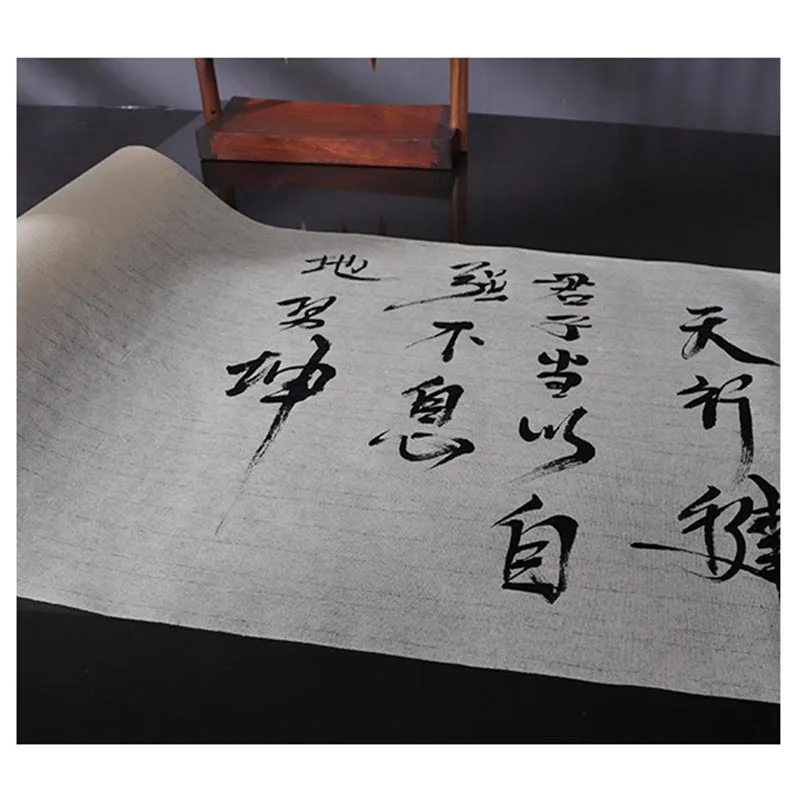 天行健
君子当以自
强不息
地势坤